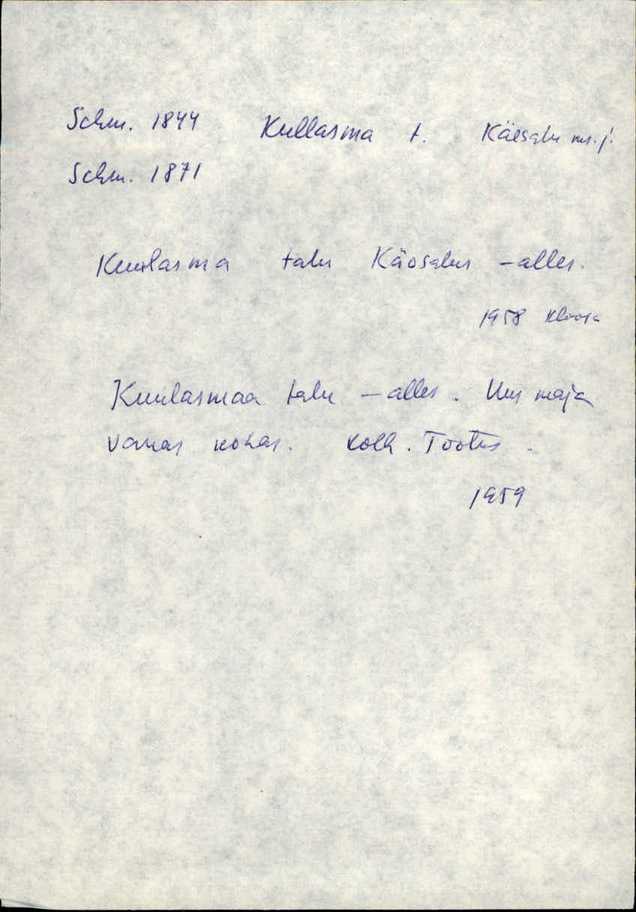 Schm. 1844 Kullasma t. Käesalu ms.j.
Schm. 1871
Kuulasma talu Käosalus – alles.
1958
Kuulasmaa talu – alles. Uus maja
vanas kohas. Kolh. Tootus.
1959